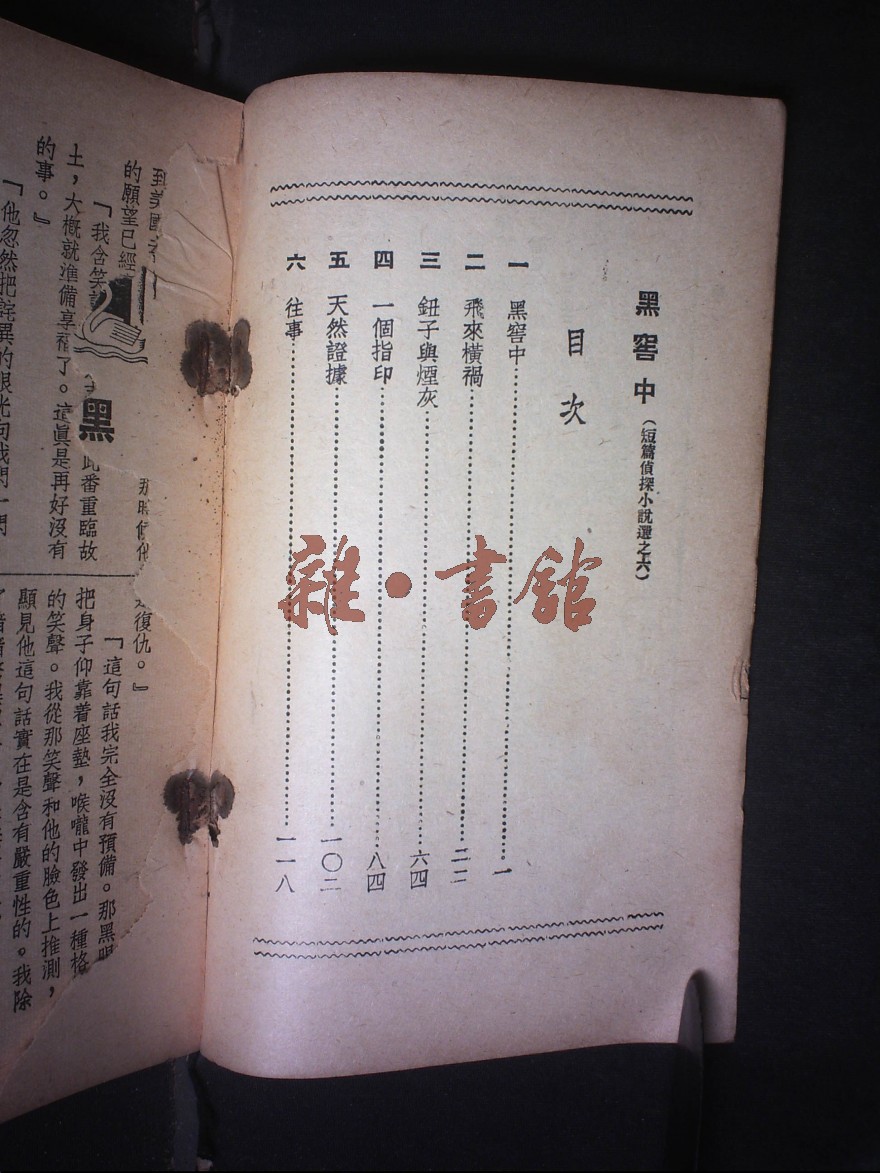 黑窖中（短篇偵探小說選之六）
目次
一 黑窖中……一
二 飛來橫禍……二二
三 鈕子與煙灰……六四
四 一個指印……八四
五 天然證據……一〇二
六 往事……一一八
雜·書館
到美國
的願望已經
「我含笑
黑
此番重臨故
土，大概就準備享福了。這真是再好沒有
的事。』
「他忽然把詫異的眼光向我們一閃
復仇。』
「這句話我完全沒有預備。那黑
把身子仰靠着座墊，喉嚨中發出一種格
的笑聲。我從那笑聲和他的臉色上推測，
顯見他這句話實在是含有嚴重性的。我除